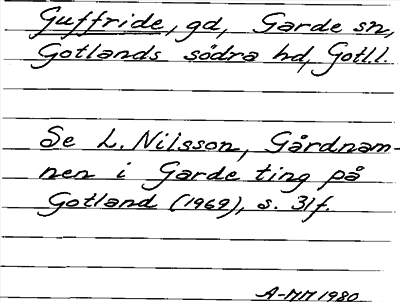 Guffride, gd, Garde sn,
Gotlands södra hd, Gotl.l.
Se L. Nilsson, Gårdnam-
nen i Garde ting på
Gotland (1969), s. 31f.
A-MM 1980